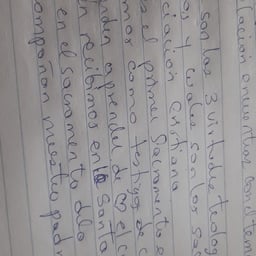 lación encuentras con el tem
son las 3 virtudes teolog
os y cuales son los sac
iación cristiana
s el primer Sacramento
mos como testigo de c
nden aprender de ♡ el c
n recibimos en la Santa
en el sacramento dla
ompañan nuestro padr